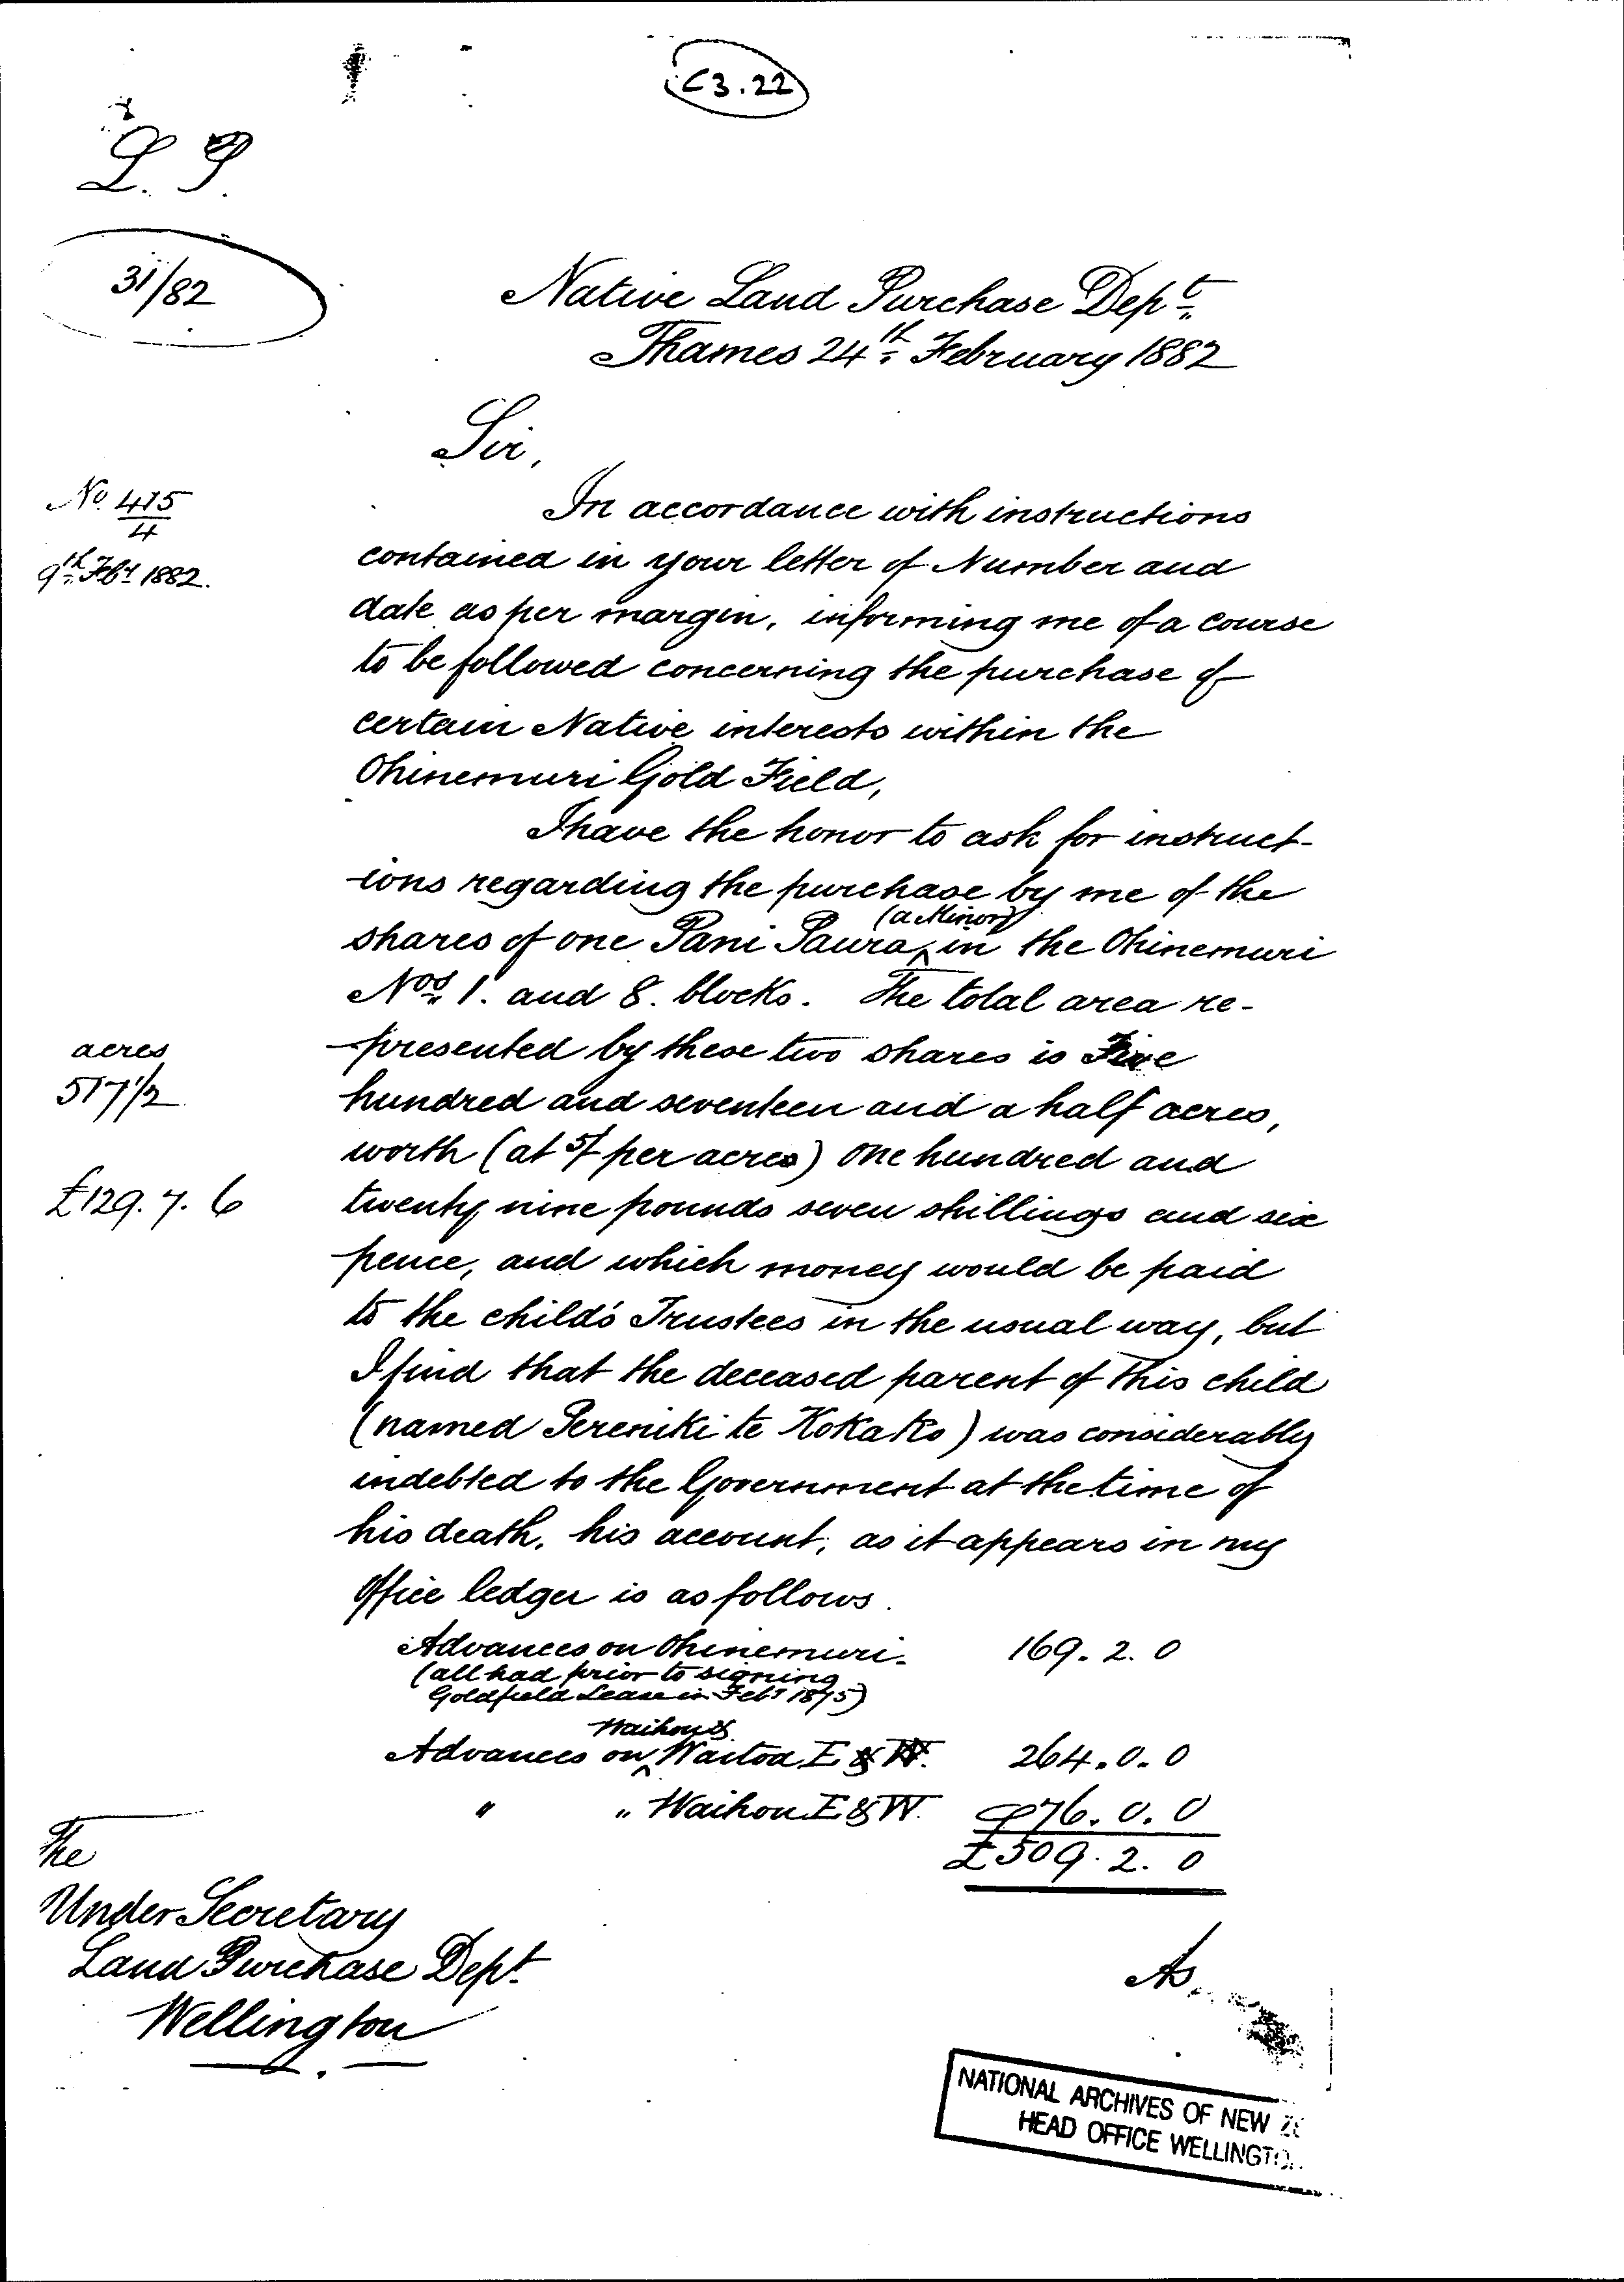 C3.22
L. P.
31/82
Native Land Purchase Dept.
Thames 24th February 1882
Sir,
No. 415/4
9th Feby 1882.
In accordance with instructions
contained in your letter of Number and
date as per margin, informing me of a course
to be followed concerning the purchase of
certain Native interests within the
Ohinemuri Gold Field,
I have the honor to ask for instruct-
-ions regarding the purchase by me of the
shares of one Pani Paura (a Minor) in the Ohinemuri
Nos. 1. and 8. blocks. The total area re-
-presented by these two shares is Five
acres
517 1/2
hundred and seventeen and a half acres,
worth (at 5/ per acres) one hundred and
£129. 7. 6
twenty nine pounds seven shillings and six
pence, and which money would be paid
to the child's Trustees in the usual way, but
I find that the deceased parent of this child
(named Pereniki te Kokako) was considerably
indebted to the Government at the time of
his death, his account, as it appears in my
Office ledger is as follows.
Advances on Ohinemuri. 169. 2. 0
(all had prior to signing
Goldfield Lease in Feby 1875)
Advances on Waihou & Waitoa E & W. 264. 0. 0
" " Waihou E & W. 76. 0. 0
£509. 2. 0
The
Under Secretary
Land Purchase Dept.
Wellington
As
NATIONAL ARCHIVES OF NEW
HEAD OFFICE WELLINGTON